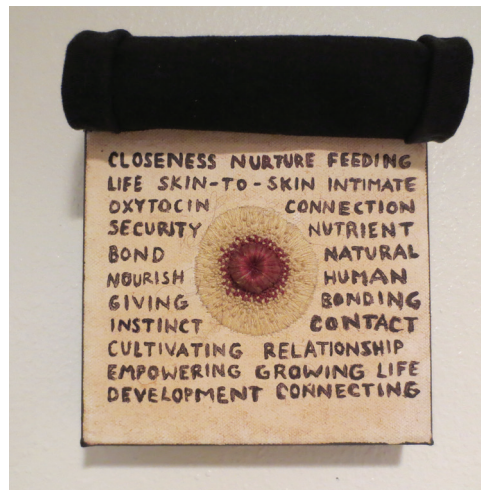 CLOSENESS NURTURE FEEDING
LIFE SKIN-TO-SKIN INTIMATE
OXYTOCIN CONNECTION
SECURITY NUTRIENT
BOND NATURAL
NOURISH HUMAN
GIVING BONDING
INSTINCT CONTACT
CULTIVATING RELATIONSHIP
EMPOWERING GROWING LIFE
DEVELOPMENT CONNECTING